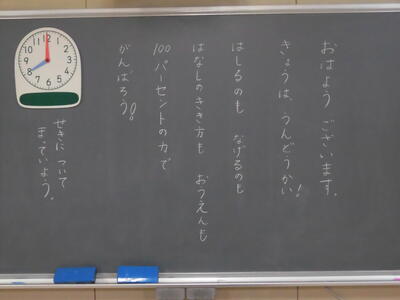 おはよう ございます。
きょうは、うんどうかい!
はしるのも なげるのも
はなしのきき方も おうえんも
100パーセントの力で
がんばろう!
せきに ついて
まっていよう。